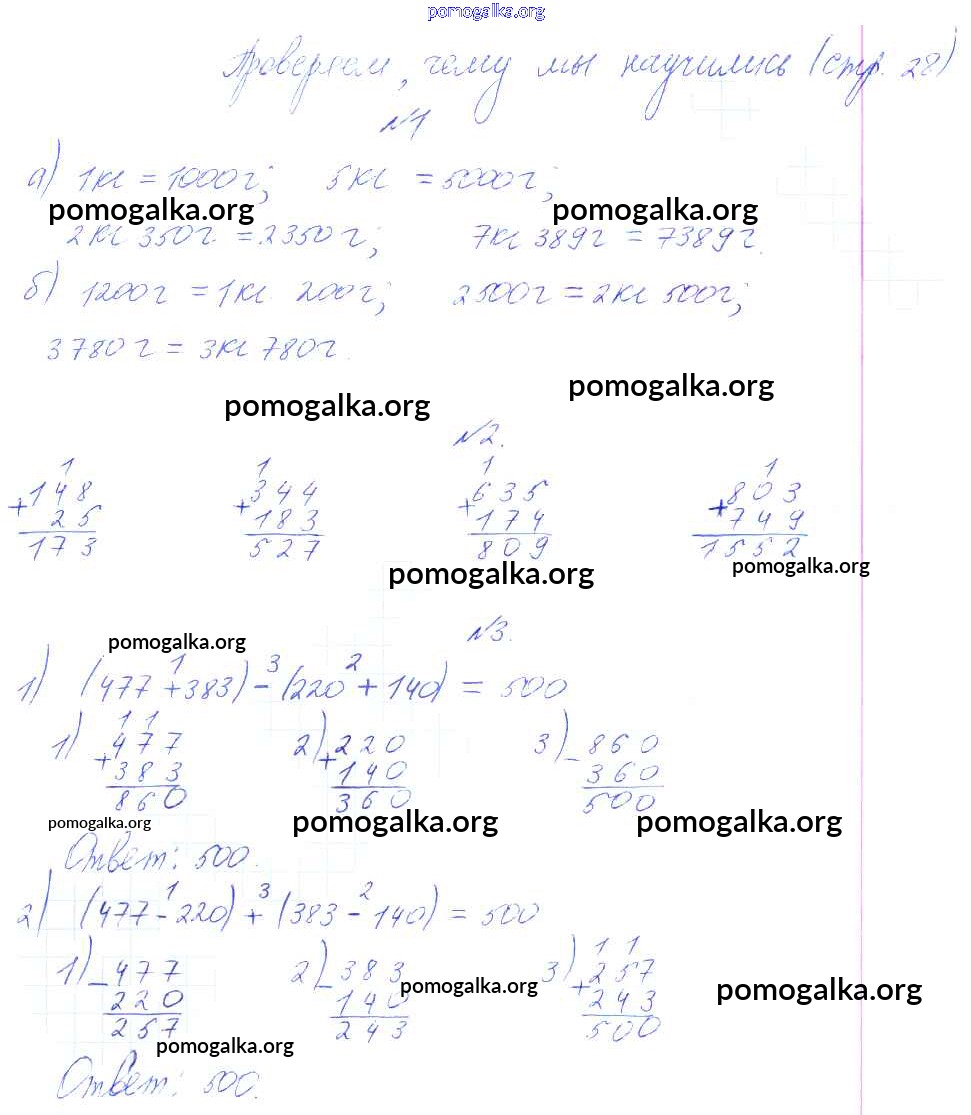 pomogalka.org
Проверяем, чему мы научились (стр. 28)
№1
а) 1кг = 1000г; 5кг = 5000г;
pomogalka.org pomogalka.org
2кг 350г = 2350г; 7кг 389г = 7389г.
б) 1200г = 1кг 200г; 2500г = 2кг 500г;
3780г = 3кг 780г.
pomogalka.org pomogalka.org
№2.
1 1 1 1
+148 +344 +635 +803
25 183 174 749
173 527 809 1552
pomogalka.org pomogalka.org
№3.
pomogalka.org
1 3 2
1) (477 + 383) - (220 + 140) = 500
1 1
1) +477 2) +220 3) -860
383 140 360
860 360 500
pomogalka.org pomogalka.org pomogalka.org
Ответ: 500.
1 3 2
2) (477 - 220) + (383 - 140) = 500
1 1
1) -477 2) -383 3) +257
pomogalka.org pomogalka.org
220 140 243
257 243 500
pomogalka.org
Ответ: 500.